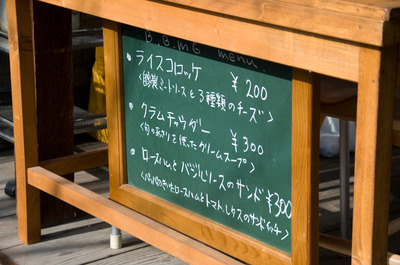 B.B.MG menu
・ライスコロッケ ¥200
<自製ミートソースと3種類のチーズ>
・クラムチャウダー ¥300
<旬のあさりを使ったクリームスープ>
・ロースハムとバジルソースのサンド ¥300
ロースハムとトマト、レタスのサンドイッチ>